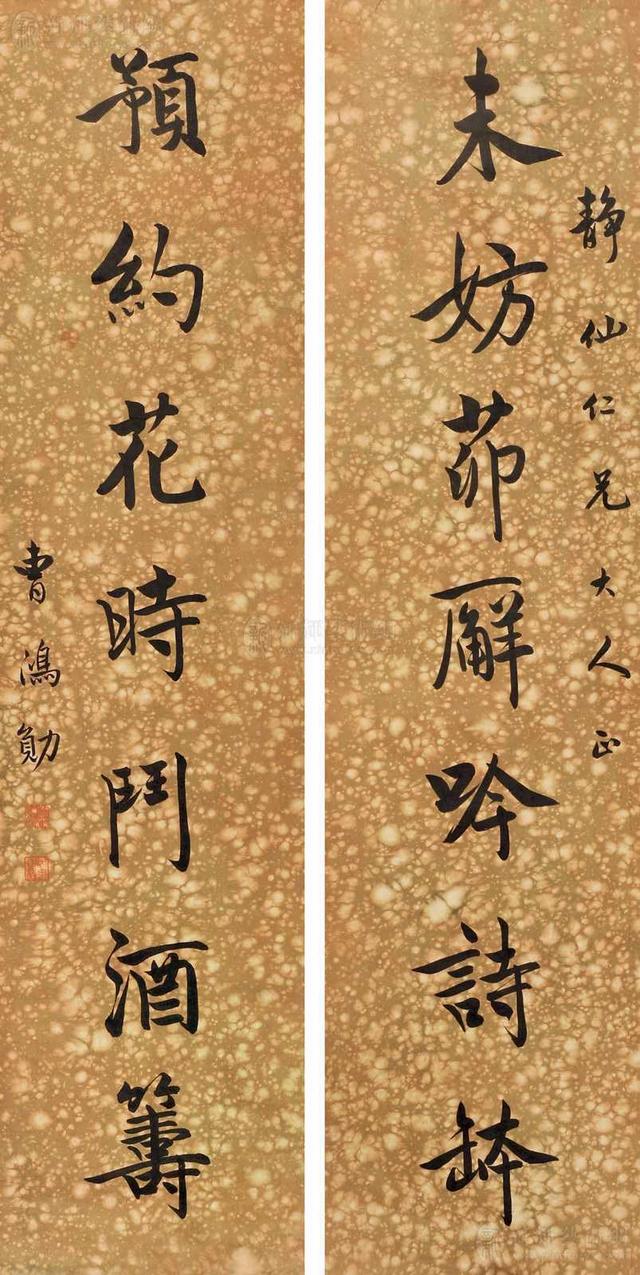 靜仙仁兄大人正
未妨茆廨吟詩缽
預約花時鬥酒籌
曹鴻勛